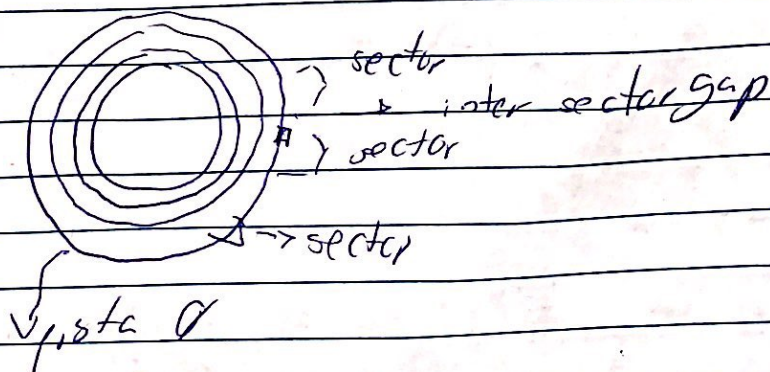 sector
inter sector gap
sector
sector
pista 0